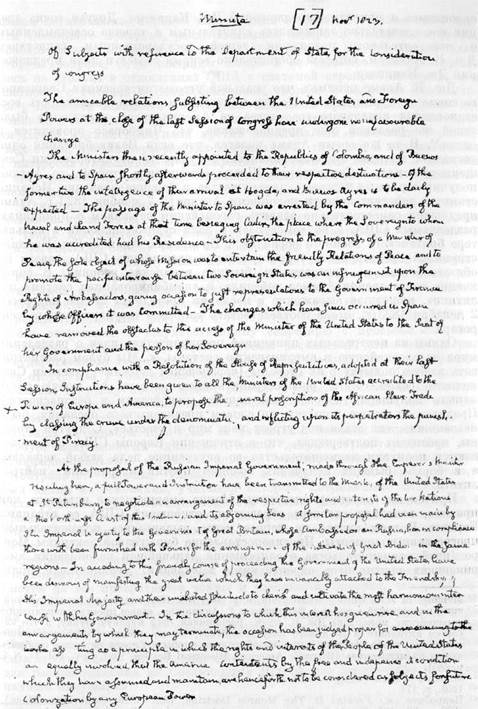 Minute [17] Novr 1823.
Of Subjects with reference to the Department of State for the consideration
of Congress
The amicable relations subsisting between the United States and Foreign
Powers at the close of the last Session of Congress have undergone no unfavourable
change
The Ministers then recently appointed to the Republics of Colombia, and of Buenos
Ayres and to Spain shortly afterwards proceeded to their respective destinations - Of the
former two the intelligence of their arrival at Bogota, and Buenos Ayres is to be daily
expected - The passage of the Minister to Spain was arrested by the Commanders of the
Naval and Land Forces at that time besieging Cadiz, the place where the Sovereign to whom
he was accredited had his Residence - This obstruction to the progress of a Minister of
Peace, the sole object of whose Mission was to entertain the friendly Relations of Peace and to
promote the pacific intercourse between two Sovereign States, was an infringement upon the
Rights of Ambassadors, giving occasion to just representations to the Government of France
by whose Officers it was committed - The changes which have since occurred in Spain
have removed the obstacles to the access of the Minister of the United States to the Seat of
her Government and the person of her Sovereign
In compliance with a Resolution of the House of Representatives, adopted at their last
Session, Instructions have been given to all the Ministers of the United States accredited to the
Powers of Europe and America, to propose the proscription of the African Slave Trade
by classing the crime under the denomination, and inflicting upon its perpetrators the punish-
ment of Piracy.
At the proposal of the Russian Imperial Government, made through the Emperor's Minister
residing here, a full Power and Instructions have been transmitted to the Minister of the United States
at St Petersburg to negotiate an arrangement of the respective rights and interests of the two Nations
North West Coast of this Continent, and its adjoining Seas A similar proposal had been made by
His Imperial Majesty to the Government of Great Britain, whose Ambassador in Russia, has in compliance
there with been furnished with Powers for the arrangement of the interests of Great Britain in the same
regions - In acceding to this friendly course of proceeding the Government of the United States have
been desirous of manifesting the great value which they have invariably attached to the Friendship of
His Imperial Majesty and their unabated solicitude to cherish and cultivate the most harmonious inter-
course with his Government - In the discussions to which this interest has given rise, and in the
arrangements by which they may terminate, the occasion has been judged proper for
asserting as a principle in which the rights and interests of the People of the United States
are equally involved that the American Continents by the free and independent condition
which they have assumed and maintain, are henceforth not to be considered as subjects for future
Colonization by any European Power